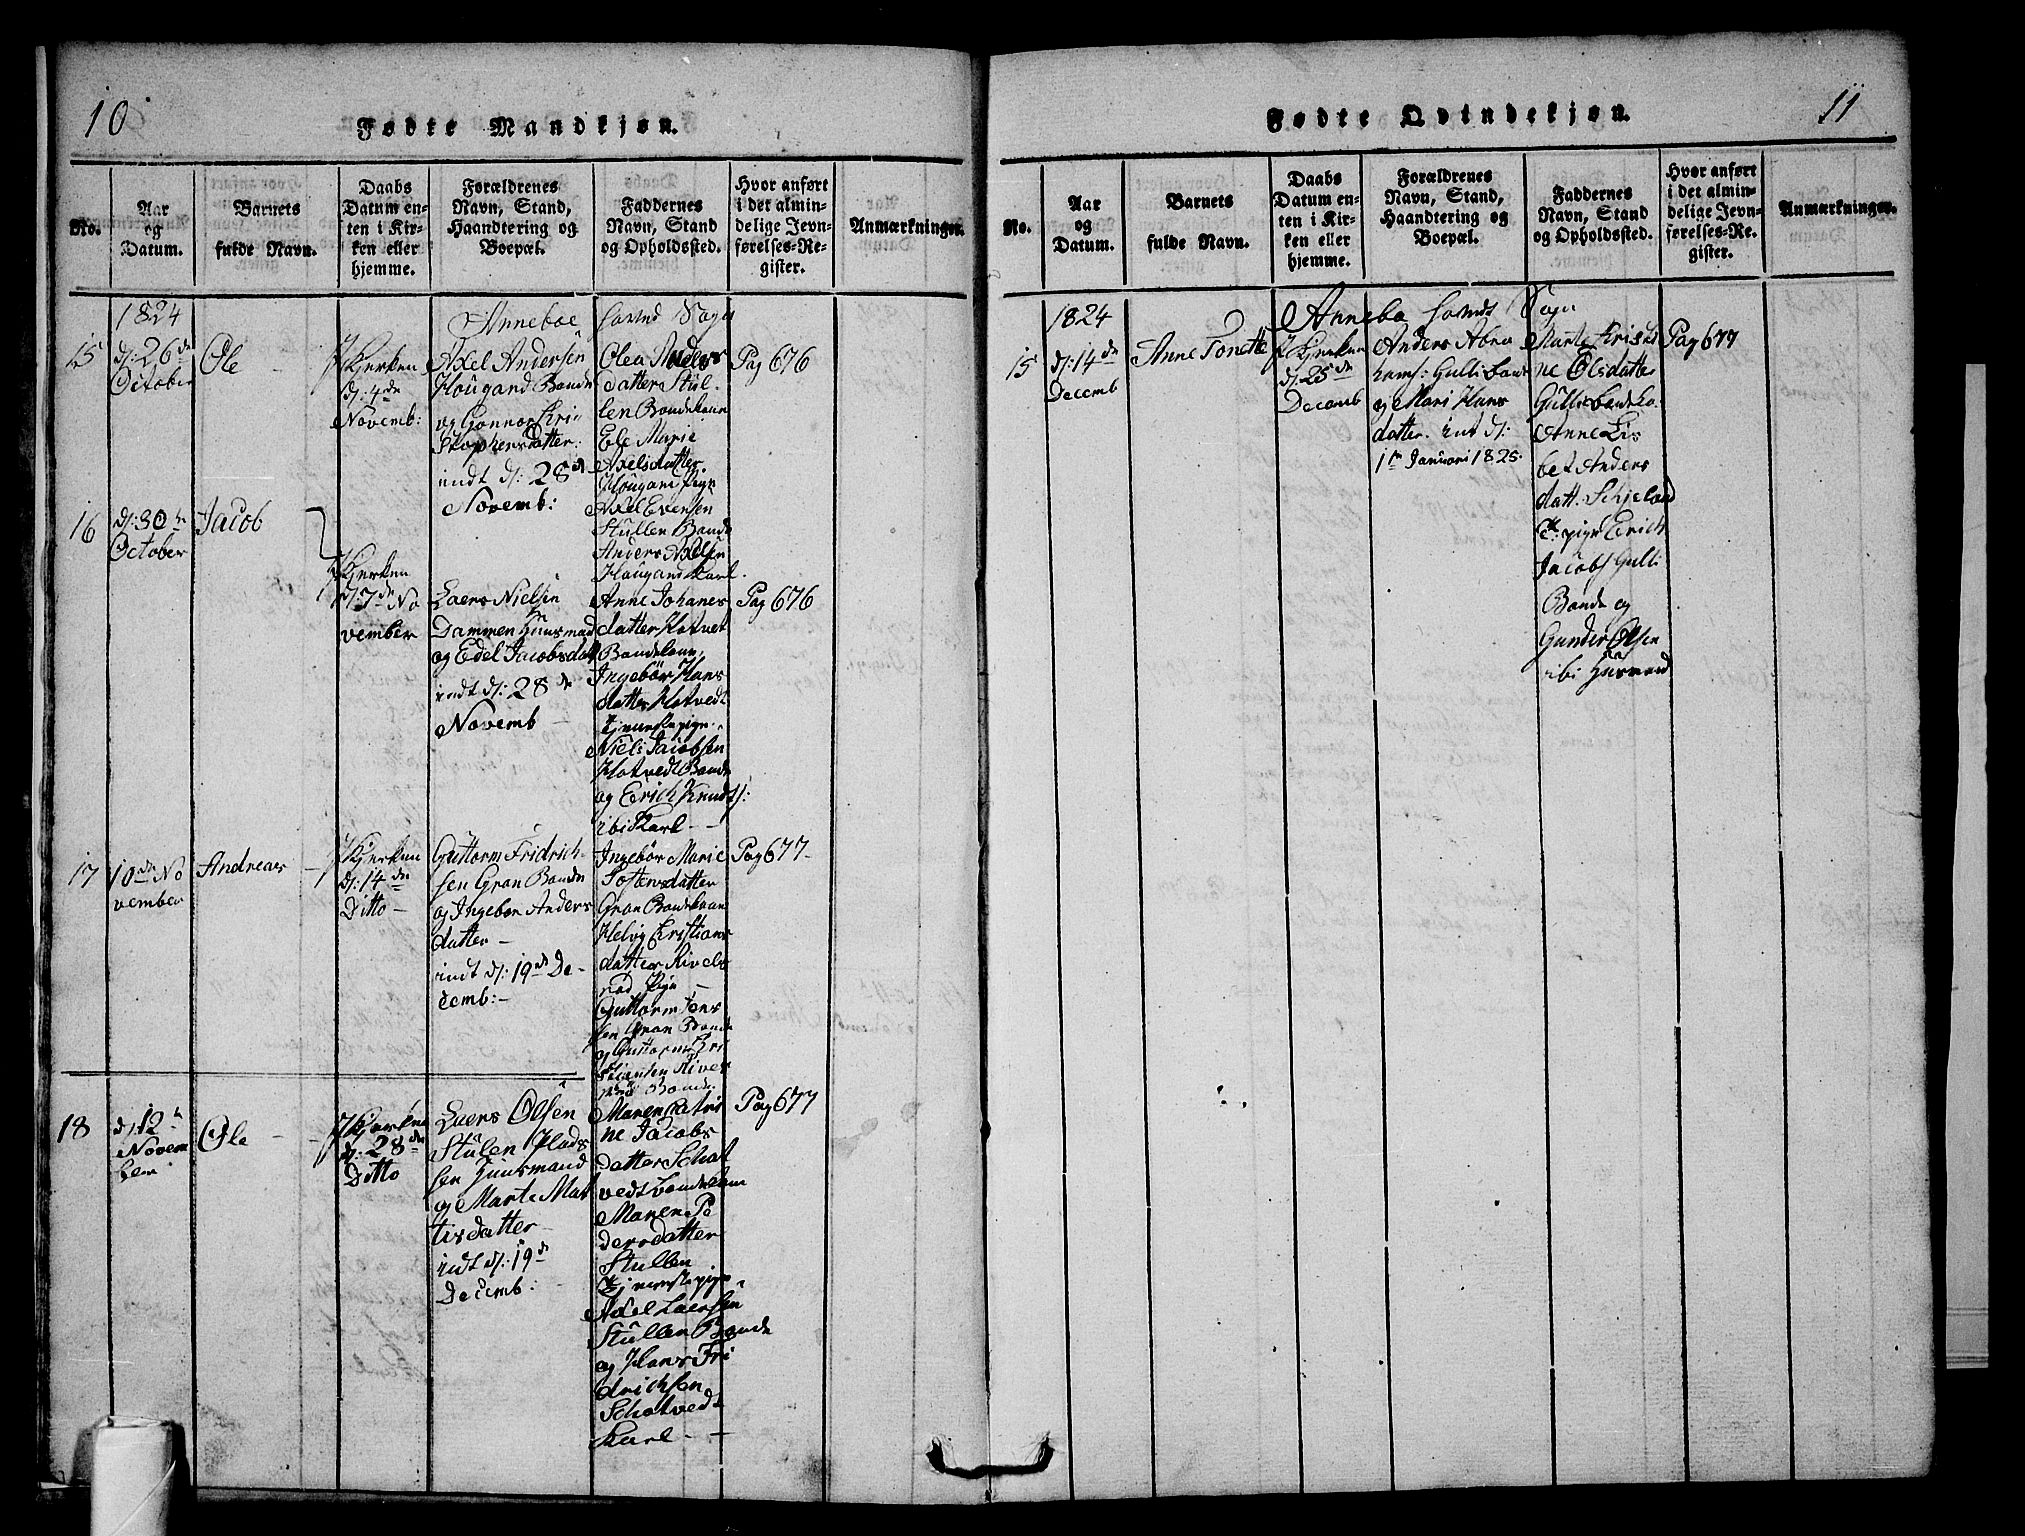 10
Fødte Mandkjøn.
No.
Aar
og
Datum.
Barnets
fulde Navn.
Daabs
Datum en-
ten i Kir-
ken eller
hjemme.
Forældrenes
Navn, Stand,
Haandtering og
Boepæl.
Faddernes
Navn, Stand
og Opholdssted.
Hvor anført
i det almin-
delige Jevn-
førelses-Re-
gister.
Anmærkninger.
1824
Anneboe Sogn
15
d: 26de
October
Ole
Kjerken
d: 4de
Novemb:
Axel Andersen
Hougand Bonde
og Gonnor Kri
stophersdatter
indt d: 28de
Novemb:
Olea Anders
datter Stul
len Bondekone
Ele Marie
Axelsdatter
Hougand Pige
Axel Evensen
Stullen Bonde
Anders Axelsen
Hougand Karl.
Pag 676
16
d: 30te
October
Jacob
Kjerken
d: 7de No
vember
Laers Nielsen
Dammen Huusmad
og Edel Jacobsdatt
indt d: 28de
Novemb
Anne Johanes
datter Hotvet
Bondekone
Ingebør Hans
datter Hotvedt
Tjenestepige
Niels Jacobsen
Hotvedt Bonde
og Erich Knuds:
ibi Karl
Pag 676
17
10de No
vember
Andreas
Kjerken
d: 14de
Ditto
Guttorm Fridrich
sen Gran Bonde
og Ingebør Anders
datter
indt d: 19de De-
cemb:
Ingebør Marie
Tostensdatter
Gran Bondekone
Helvig Kristians
datter River
rød Pige
Guttorm Jens
sen Gran Bonde
og Guttorm Kri
stiansen River
rød Bonde
Pag 677
18
d: 12te
Novem
ber
Ole
Kjerken
d: 28de
Ditto
Laers Olsen
Stulen Plads
sen Huusmand
og Marte Mat
tisdatter
indt d: 19de
Decemb:
Maren Katri
ne Jacobs
datter Schot
vedt bondekone
Maren Pe
dersdatter
Stullen
Tjenestepige
Axel Laersen
Stullen Bonde
og Hans Fri
drichsen
Schotvedt
Karl
Pag 677
11
Fødte Qvindekjøn.
No.
Aar
og
Datum.
Barnets
fulde Navn.
Daabs
Datum en-
ten i Kir-
ken eller
hjemme.
Forældrenes
Navn, Stand,
Haandtering og
Boepæl.
Faddernes
Navn, Stand
og Opholdssted.
Hvor anført
i det almin-
delige Jevn-
førelses-Re-
gister.
Anmærkninger.
1824
Annebo Sogn
15
d: 14de
Decemb
Anne Tonette
Kjerken
d: 25de
Decemb
Anders Abra
hams: Gulli Bonde
og Mari Hans
datter. indt d:
1te Januari 1825.
Marte Kristi
ne Olsdatter
Gulli bondeko.
Anne Lis
bet Anders
datt. Schjeland
pige Erich
Jacobs Gulli
Bonde og
Gunder Olsen
ibi Husmand
Pag 677